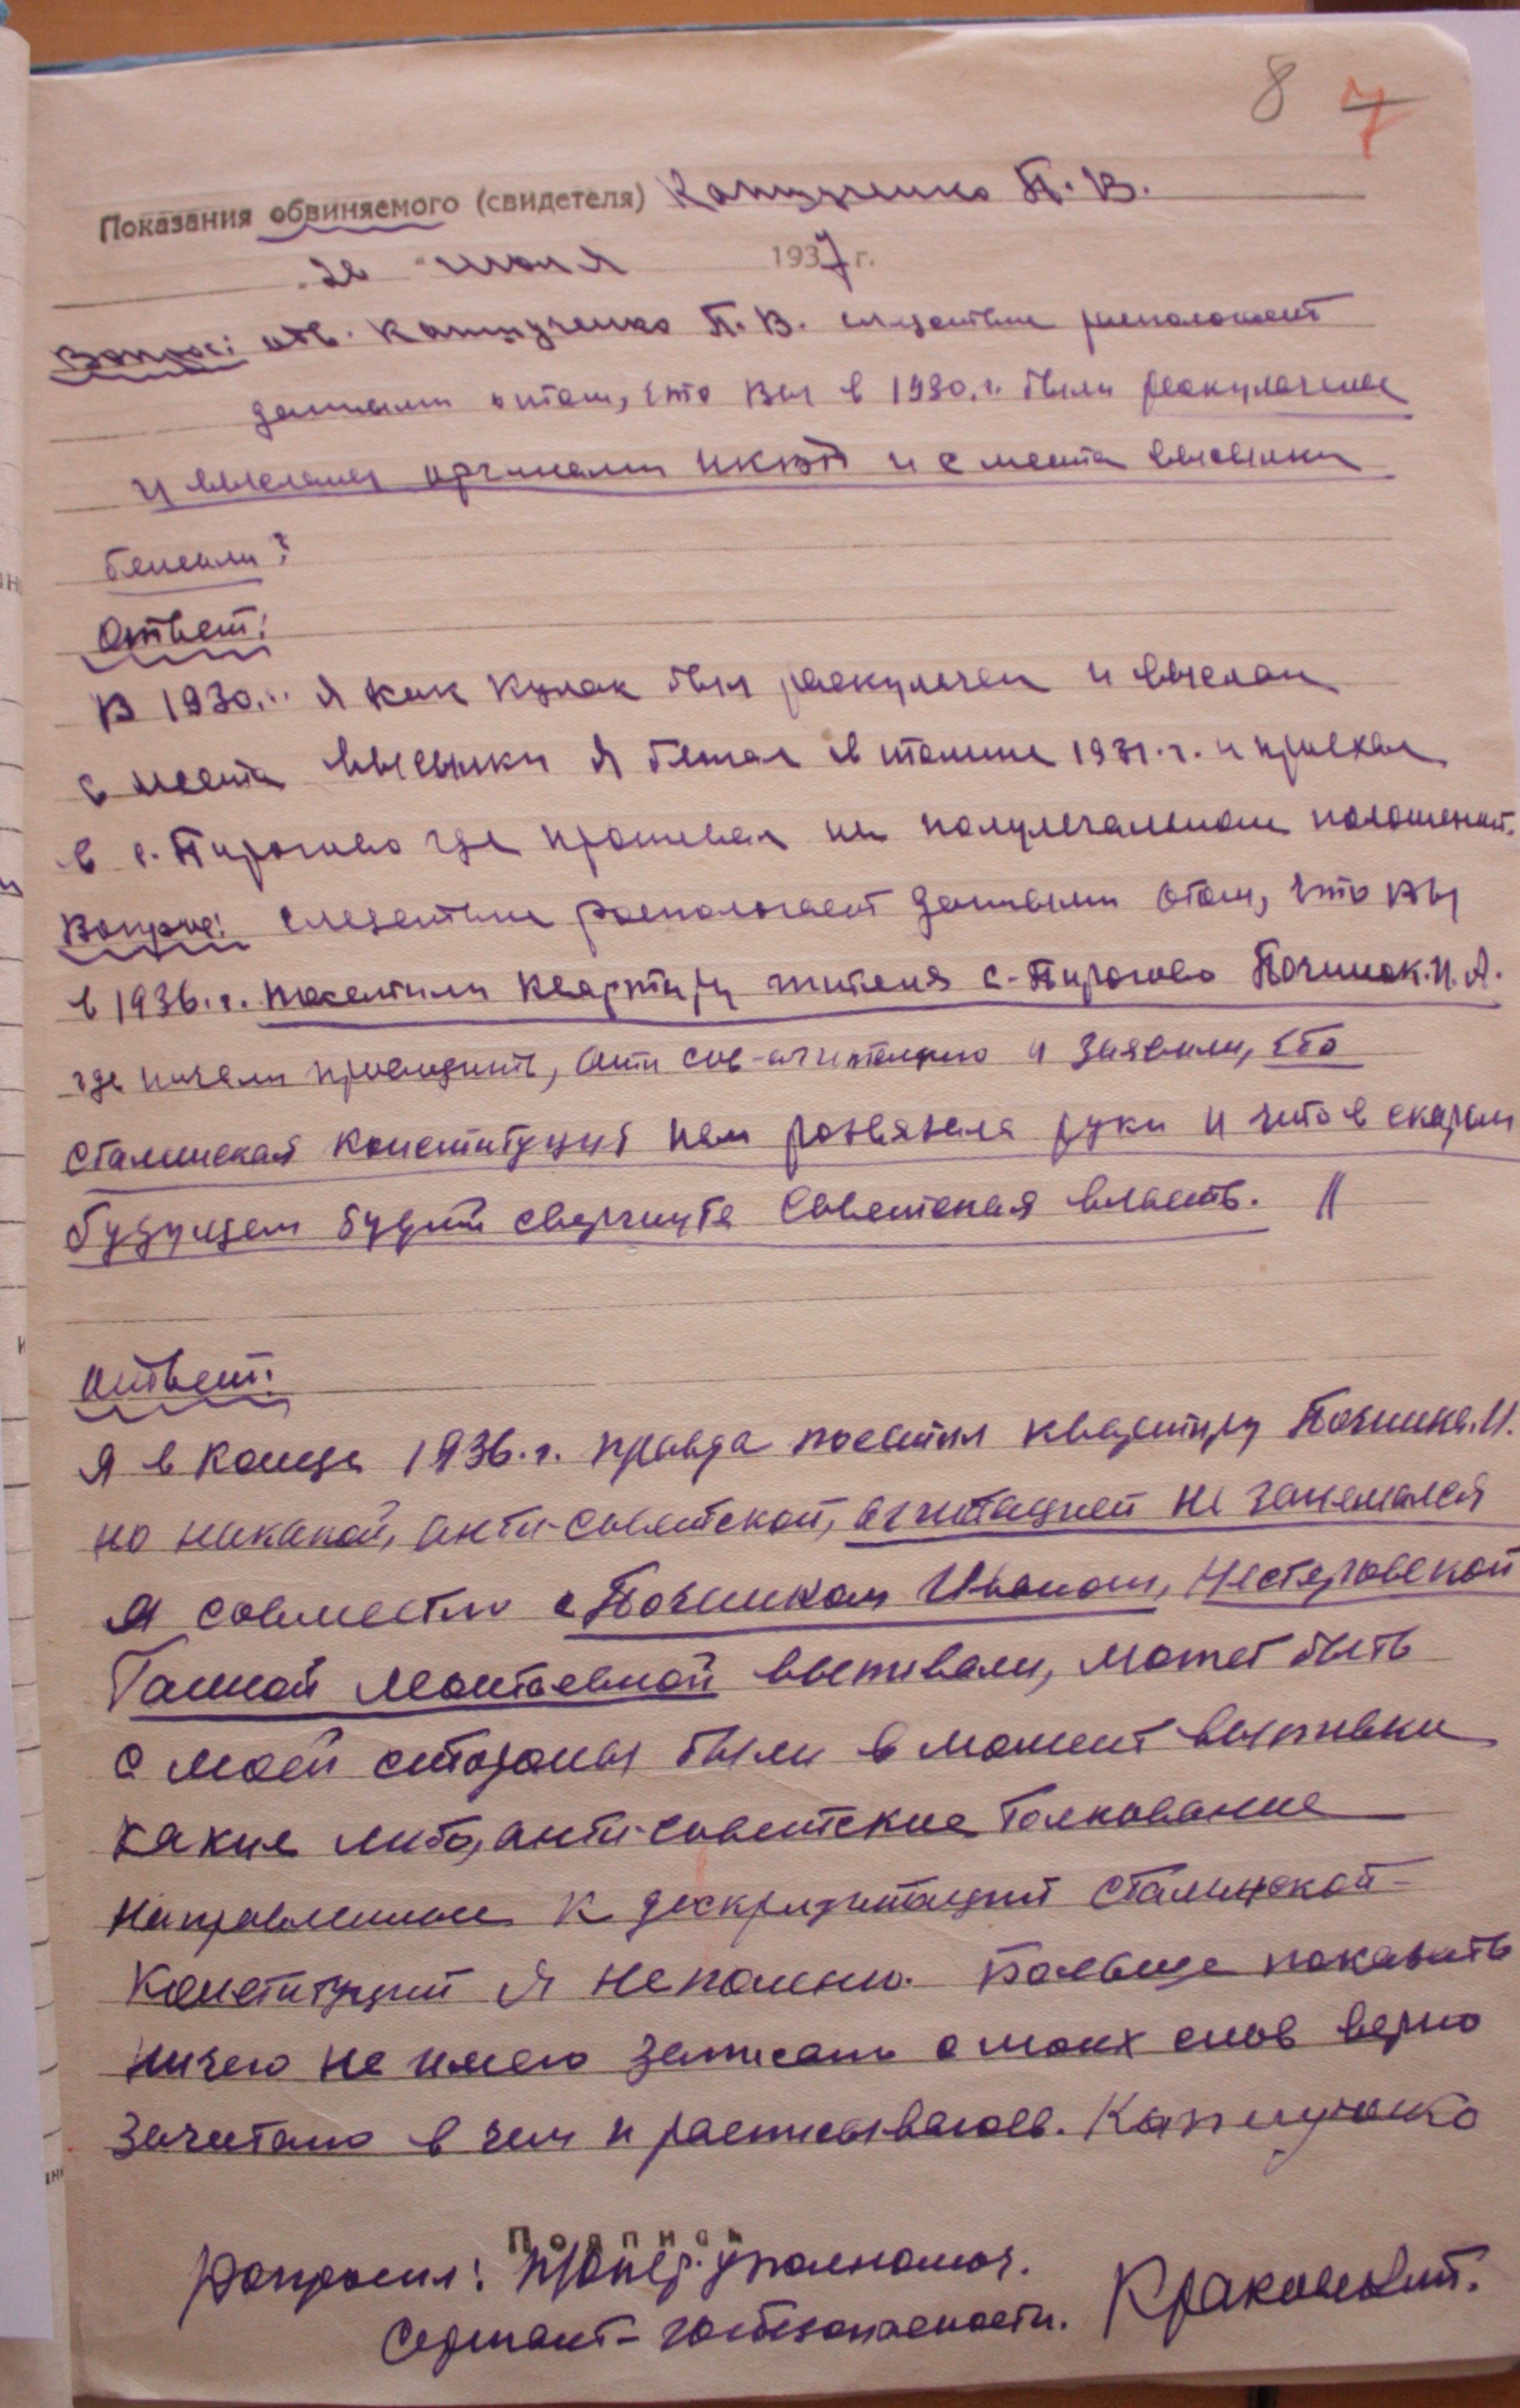 8 7
Показания обвиняемого (свидетеля) Капущенко П. В.
июля 1937 г.
Вопрос: обв. Капущенко П. В. следствие распологает
данными о том, что Вы в 1930.г. были раскулачены
и высланы органами НКВД и с места высылки
бежали?
Ответ:
В 1930.г. я как кулак был раскулачен и выслан
с места высылки я бежал в 1931.г. и приехал
в с. Пирогово где проживал на полулегальном положении.
Вопрос: следствие распологает данными о том, что Вы
в 1936.г. посетили квартиру жителя с-Пирогово Починок.И.А.
где начали проводить, анти сов-агитацию и заявили, что
Сталинская конституция нам розвязала руки и что в скором
будущем будит свергнута Советская власть.
Ответ:
я в конце 1936.г. правда посетил квартиру Починка.И.
но никакой, анти-советской, агитацией не занемался
я совместно с Починком Иваном, Нестеровской
Ганной выпивали, может быть
с моей стороны были в момент выпивки
какие либо, анти-советские толкование
направленные к дескридитации Сталинской-
Конституции я не помню. Больше показать
ничего не имею записано с моих слов верно
зачитано в чем и расписываюсь. Капущенко
Подпись
Допросил: уполномоч.
Сержант-госбезопасности. Краковский.